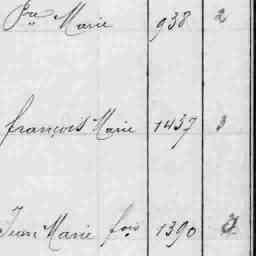 Pre Marie 938 2
françois Marie 1437 3
Jean Marie fois 1390